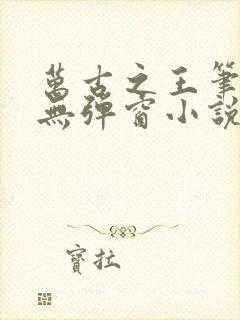 萬古之王筆
無彈窗小說
寶拉